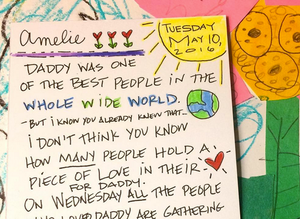 Amelie
TUESDAY
MAY 10,
2016
DADDY WAS ONE
OF THE BEST PEOPLE IN THE
WHOLE WIDE WORLD.
-BUT I KNOW YOU ALREADY KNEW THAT...
I DON'T THINK YOU KNOW
HOW MANY PEOPLE HOLD A
PIECE OF LOVE IN THEIR
FOR DADDY.
ON WEDNESDAY ALL THE PEOPLE
WHO LOVED DADDY ARE GATHERING